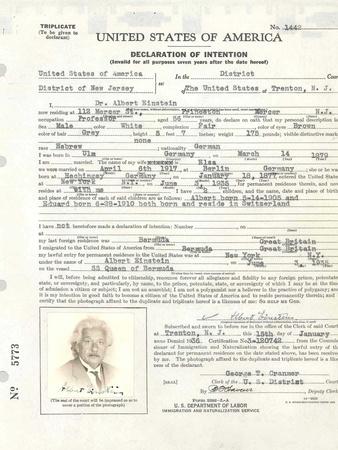 TRIPLICATE
(To be given to
declarant)
No. 1442
UNITED STATES OF AMERICA
DECLARATION OF INTENTION
(Invalid for all purposes seven years after the date hereof)
United States of America
In the District
District of New Jersey
of The United States at Trenton, N. J.
I, Dr. Albert Einstein
now residing at 112 Mercer St., Princeton Mercer N.J.
occupation Professor, aged 56 years, do declare on oath that my personal description is:
Sex Male color White complexion Fair color of eyes Brown
color of hair Grey height 5 feet 7 inches; weight 175 pounds; visible distinctive marks
none
race Hebrew nationality German
I was born in Ulm Germany on March 14 1879
I am married. The name of my wife is Elsa
we were married on April 6th 1917 at Berlin Germany
born at Hechingen Germany on January 18, 1877 entered the United States
at New York N.Y. on June 3, 1935 for permanent residence therein, and now
resides at with me I have 2 children, and the name, date and place of birth,
and place of residence of each of said children are as follows: Albert born 5-14-1905 and
Eduard born 6-28-1910 both born and reside in Switzerland
I have not heretofore made a declaration of intention:
my last foreign residence was Bermuda Great Britain
I emigrated to the United States of America from Bermuda Great Britain
my lawful entry for permanent residence in the United States was at New York N.Y.
under the name of Albert Einstein on June 3, 1935
on the vessel SS Queen of Bermuda
I will, before being admitted to citizenship, renounce forever all allegiance and fidelity to any foreign prince, potentate,
state, or sovereignty, and particularly, by name, to the prince, potentate, state, or sovereignty of which I may be at the time
of admission a citizen or subject; I am not an anarchist; I am not a polygamist nor a believer in the practice of polygamy; and
it is my intention in good faith to become a citizen of the United States of America and to reside permanently therein; and I
certify that the photograph affixed to the duplicate and triplicate hereof is a likeness of me: So HELP ME GOD.
Albert Einstein
Subscribed and sworn to before me in the office of the Clerk of said Court,
at Trenton, N. J. this 15th day of January
anno Domini 1936. Certification No. 3-120742 from the Commis-
sioner of Immigration and Naturalization showing the lawful entry of the
declarant for permanent residence on the date stated above, has been received
by me. The photograph affixed to the duplicate and triplicate hereof is a likeness of
the declarant.
George T. Cranmer
Clerk of the U. S. District Court.
By Deputy Clerk.
Form 2202-L-A
U. S. DEPARTMENT OF LABOR
IMMIGRATION AND NATURALIZATION SERVICE
Albert Einstein
No 5773